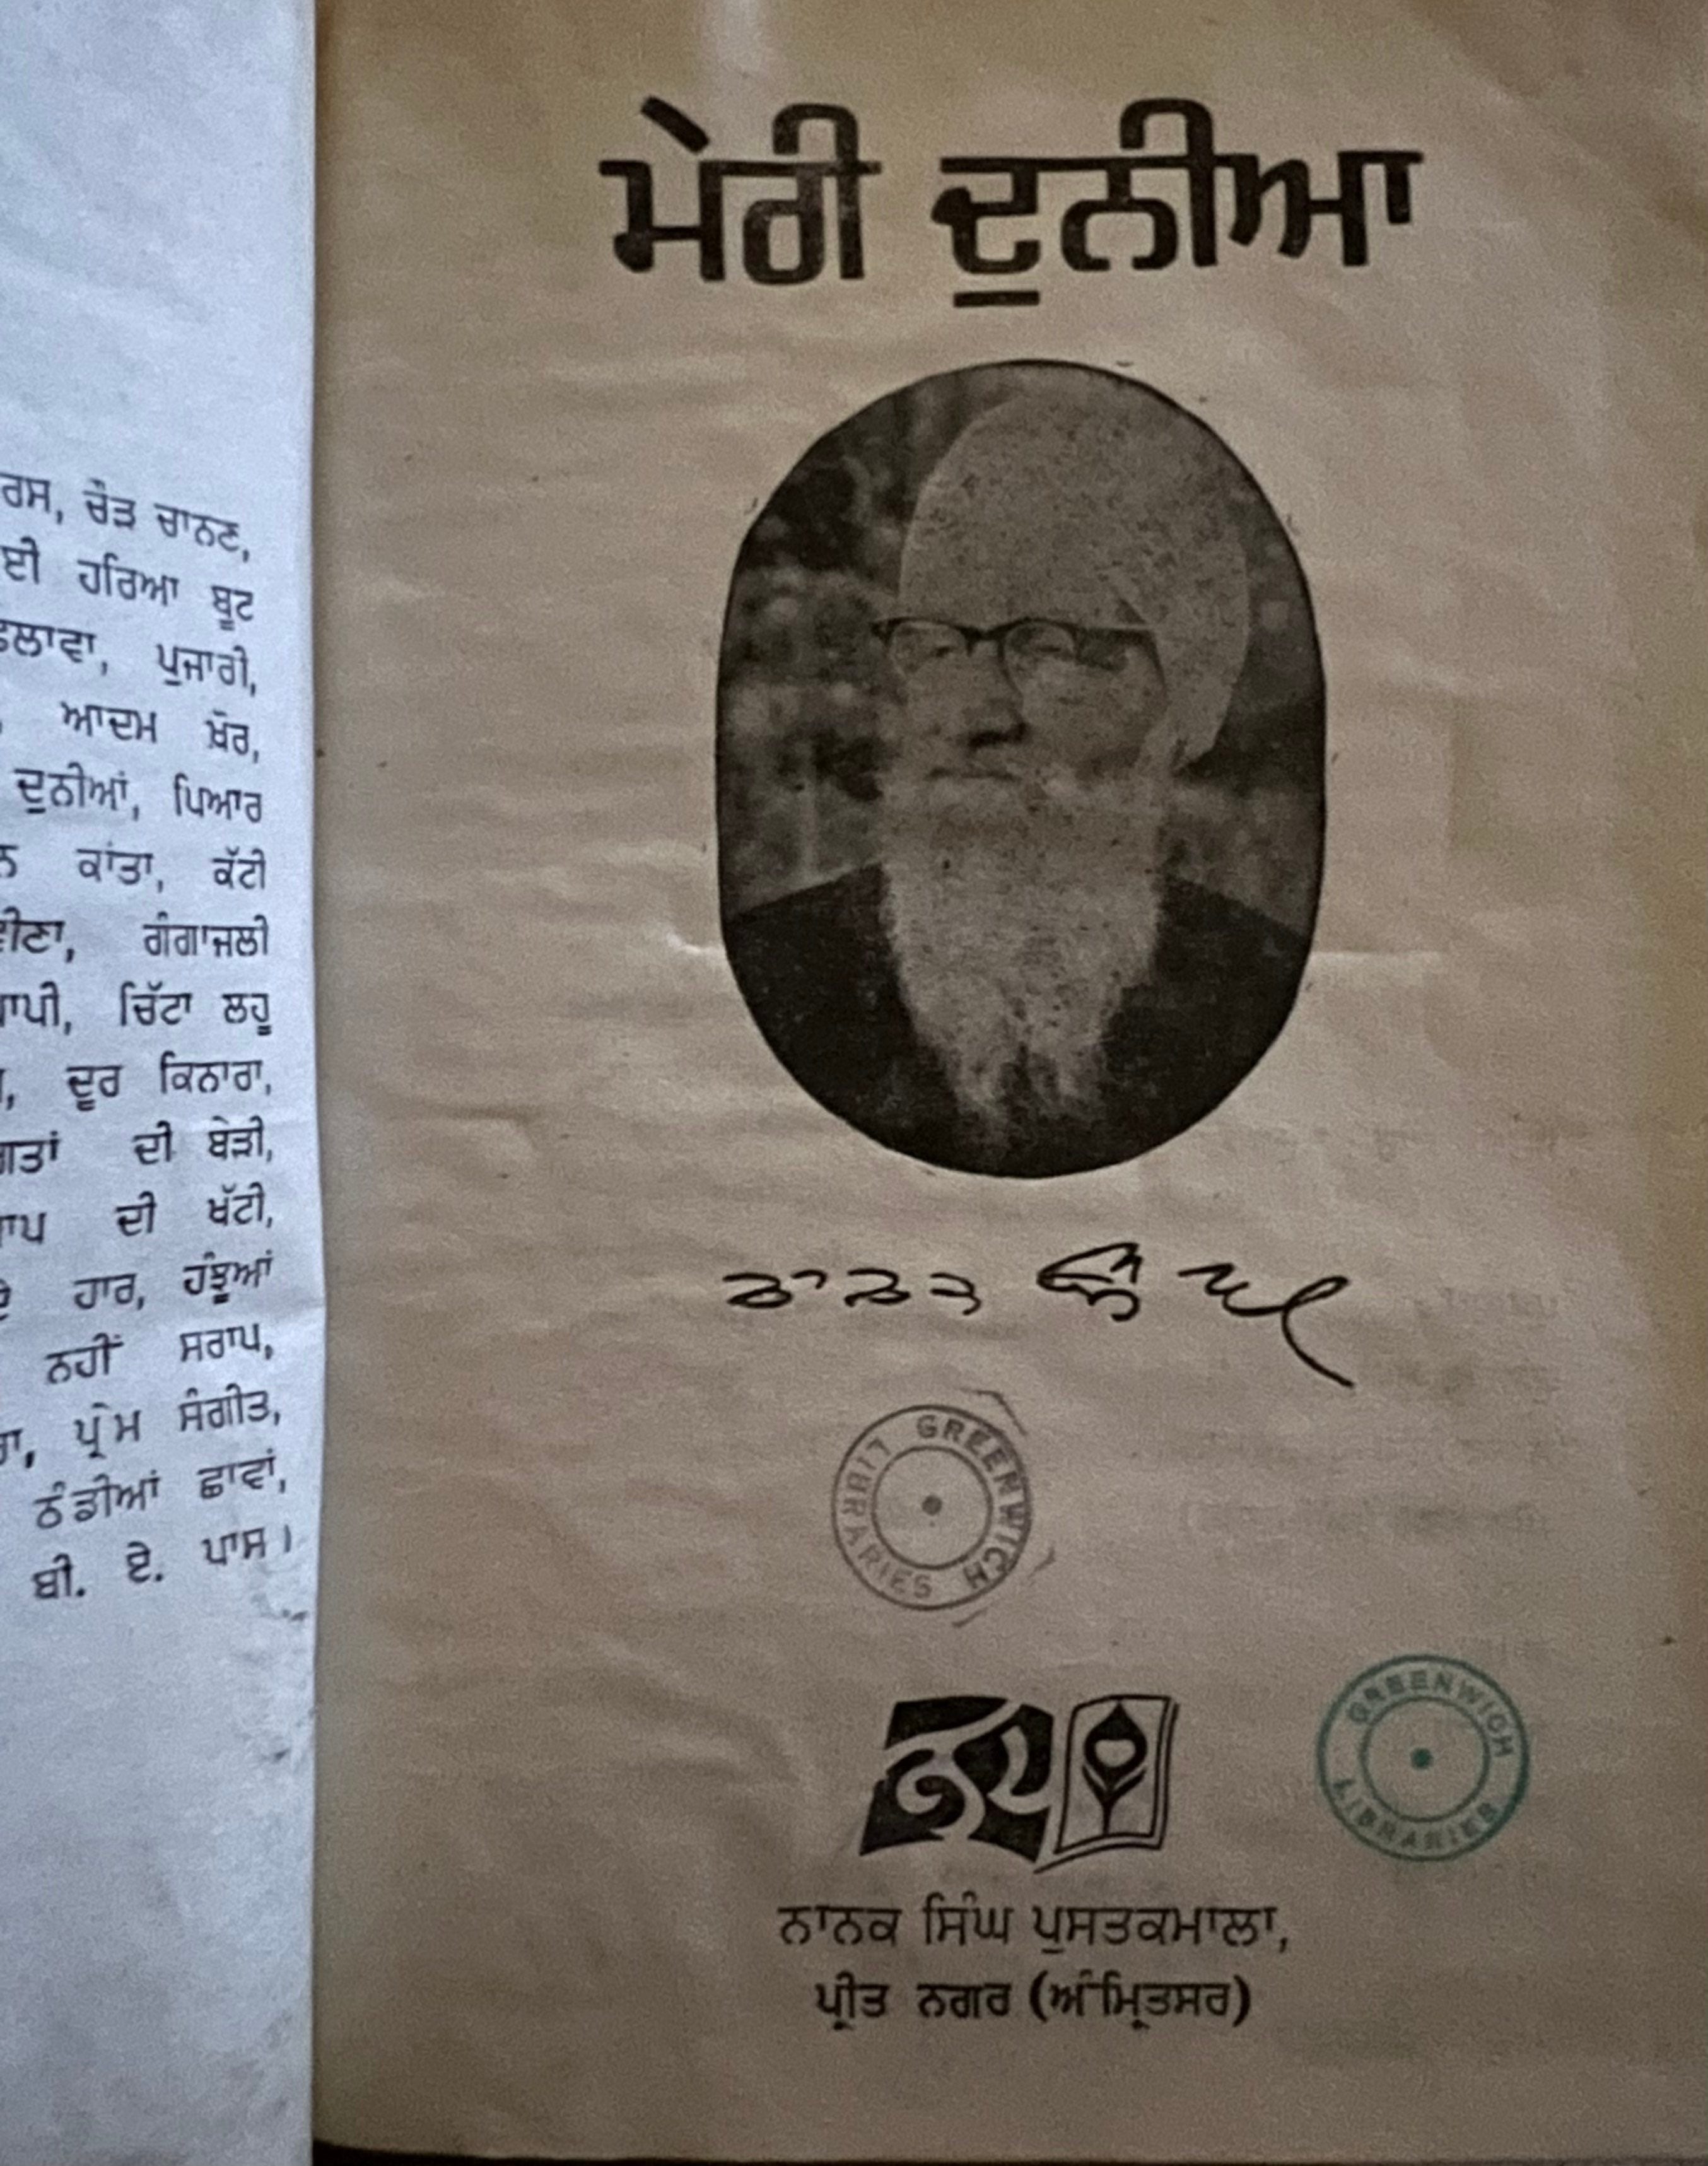 ਰਸ, ਚੌੜ ਚਾਨਣ,
ਈ ਹਰਿਆ ਬੂਟ
ਛਲਾਵਾ, ਪੁਜਾਰੀ,
ਆਦਮ ਖ਼ੋਰ,
ਦੁਨੀਆਂ, ਪਿਆਰ
ਕਾਂਤਾ, ਕੱਟੀ
ਵੀਣਾ, ਗੰਗਾਜਲੀ
ਪਾਪੀ, ਚਿੱਟਾ ਲਹੂ
ਦੂਰ ਕਿਨਾਰਾ,
ਦੀ ਬੇੜੀ,
ਦੀ ਖੱਟੀ,
ਹਾਰ, ਹੰਝੂਆਂ
ਨਹੀਂ ਸਰਾਪ,
ਪ੍ਰੇਮ ਸੰਗੀਤ,
ਠੰਡੀਆਂ ਛਾਵਾਂ,
ਬੀ. ਏ. ਪਾਸ।
ਮੇਰੀ ਦੁਨੀਆ
ਨਾਨਕ ਸਿੰਘ
GREENWICH LIBRARIES
GREENWICH LIBRARIES
ਨਾਨਕ ਸਿੰਘ ਪੁਸਤਕਮਾਲਾ,
ਪ੍ਰੀਤ ਨਗਰ (ਅੰਮ੍ਰਿਤਸਰ)